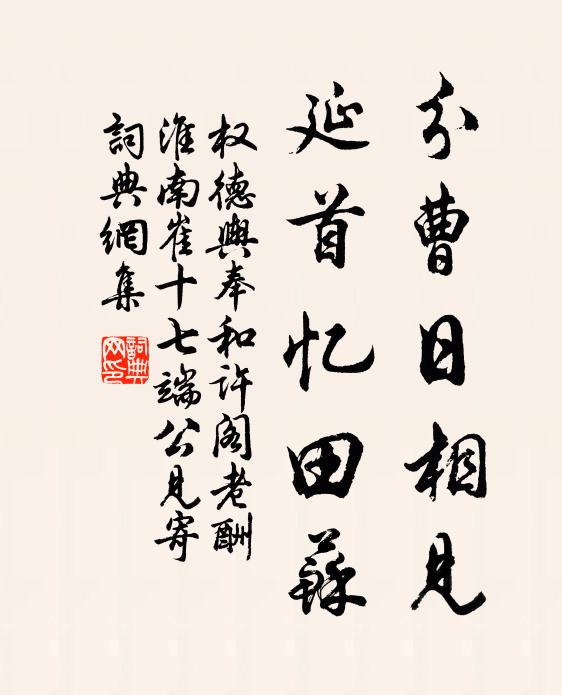 分曹日相见
延首忆田蘇
权德輿奉和许阁老酬
淮南崔十七端公见寄
詞典網集
詞典
网印